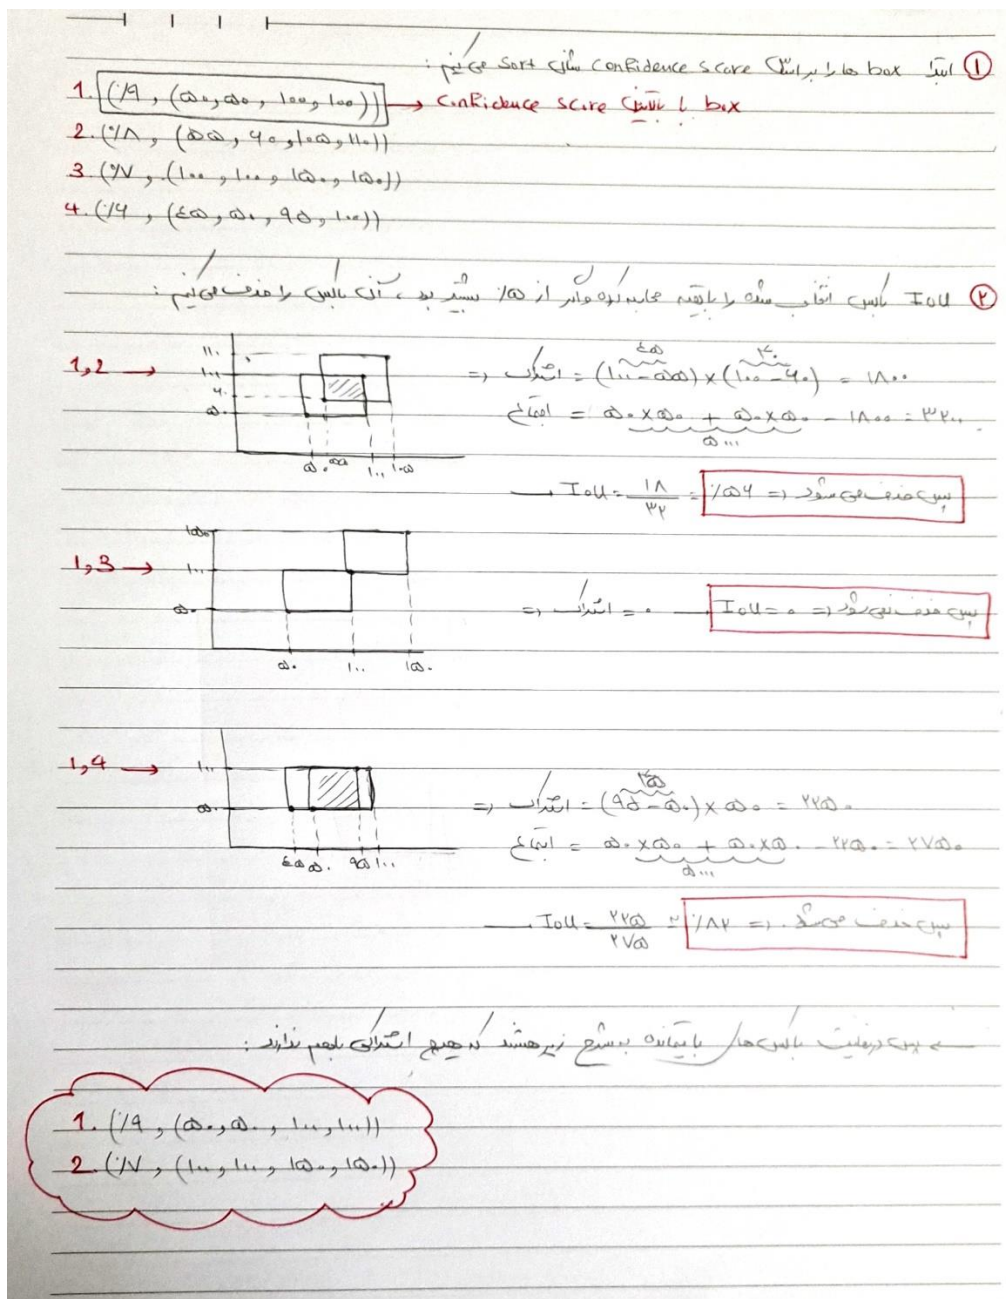 ① ابتدا box ها را بر اساس confidence score شان sort می کنیم :
1. (٪۹ , (۵۰,۵۰, ۱۰۰,۱۰۰)) → box با بالاترین confidence score
2. (٪۸ , (۵۵, ۶۰,۱۰۵,۱۱۰))
3. (٪۷ , (۱۰۰ , ۱۰۰ , ۱۵۰, ۱۵۰))
4. (٪۶ , (۴۵,۵۰, ۹۵,۱۰۰))
② IoU باکس انتخاب شده را با بقیه محاسبه کرده و اگر از ٪۵ بیشتر بود ، آن باکس را حذف می کنیم :
1,2 →
۱۱۰
۱۰۰
۶۰
۵۰
۵۰ ۵۵ ۱۰۰ ۱۰۵
۴۵ ۴۰
=> اشتراک = (۱۰۰-۵۵) × (۱۰۰-۶۰) = ۱۸۰۰
اجتماع = ۵۰×۵۰ + ۵۰×۵۰ - ۱۸۰۰ = ۳۲۰۰
۵۰۰۰
→ IoU = ۱۸/۳۲ = ٪۵۶ => پس حذف می شود
1,3 →
۱۵۰
۱۰۰
۵۰
۵۰ ۱۰۰ ۱۵۰
=> اشتراک = ۰ → IoU = ۰ => پس حذف نمی شود
1,4 →
۱۰۰
۵۰
۴۵ ۵۰ ۹۵ ۱۰۰
۴۵
=> اشتراک = (۹۵-۵۰) × ۵۰ = ۲۲۵۰
اجتماع = ۵۰×۵۰ + ۵۰×۵۰ - ۲۲۵۰ = ۲۷۵۰
۵۰۰۰
→ IoU = ۲۲۵/۲۷۵ ≃ ٪۸۲ => پس حذف می شود .
=> پس در نهایت باکس های باقیمانده به شرح زیر هستند که هیچ اشتراکی باهم ندارند :
1. (٪۹ , (۵۰,۵۰ , ۱۰۰,۱۰۰))
2. (٪۷ , (۱۰۰, ۱۰۰, ۱۵۰, ۱۵۰))